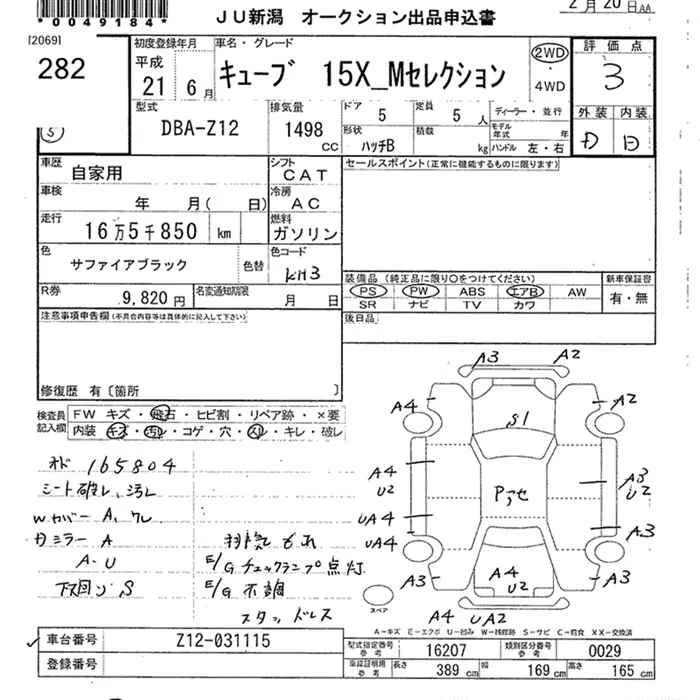 *0049184*
JU新潟 オークション出品申込書
2月20日AA
[2069]
282
初度登録年月
平成
21 6月
車名・グレード
キューブ 15X_Mセレクション
2WD
・
4WD
評価点
3
外装 内装
D D
型式
DBA-Z12
排気量
1498
CC
ドア 5
定員 5 人
形状 ハッチB
積載 kg
ディーラー・並行
モデル年式 年
ハンドル 左・右
5
車歴 自家用
シフト CAT
セールスポイント(正常に機能するものに限ります)
車検 年 月( 日)
冷房 AC
走行 16万5千850 km
燃料 ガソリン
色 サファイアブラック 色替
色コード KH3
R券 9,820円
名変通知期限 月 日
装備品(純正品に限り○をつけてください)
PS PW ABS エアB AW
SR ナビ TV カワ
新車保証書
有・無
注意事項申告欄(不具合内容等は具体的に記入して下さい)
後日品
修復歴 有〔箇所 〕
検査員記入欄
FW キズ・飛石・ヒビ割・リペア跡・×要
内装 キズ・汚レ・コゲ・穴・スレ・キレ・破レ
オド 165804
シート破レ、汚レ
Wカバー A、ワレ
ガミラー A
A・U
下回り S
排気もれ
E/Gチェックランプ点灯
E/G不調
スタッドレス
A3 A2
A4 A2
S1
A4
U2
Pアセ
A3
U2
UA4
UA4
A3
A3
A4
U2
A3
A4 UA2
スペア
A-キズ E-エクボ U-凹み W-補修跡 S-サビ C-腐食 XX-交換済
車台番号 Z12-031115
登録番号
型式指定番号 参考 16207
類別区分番号 参考 0029
車庫証明用 参考
長さ 389 cm
幅 169 cm
高さ 165 cm